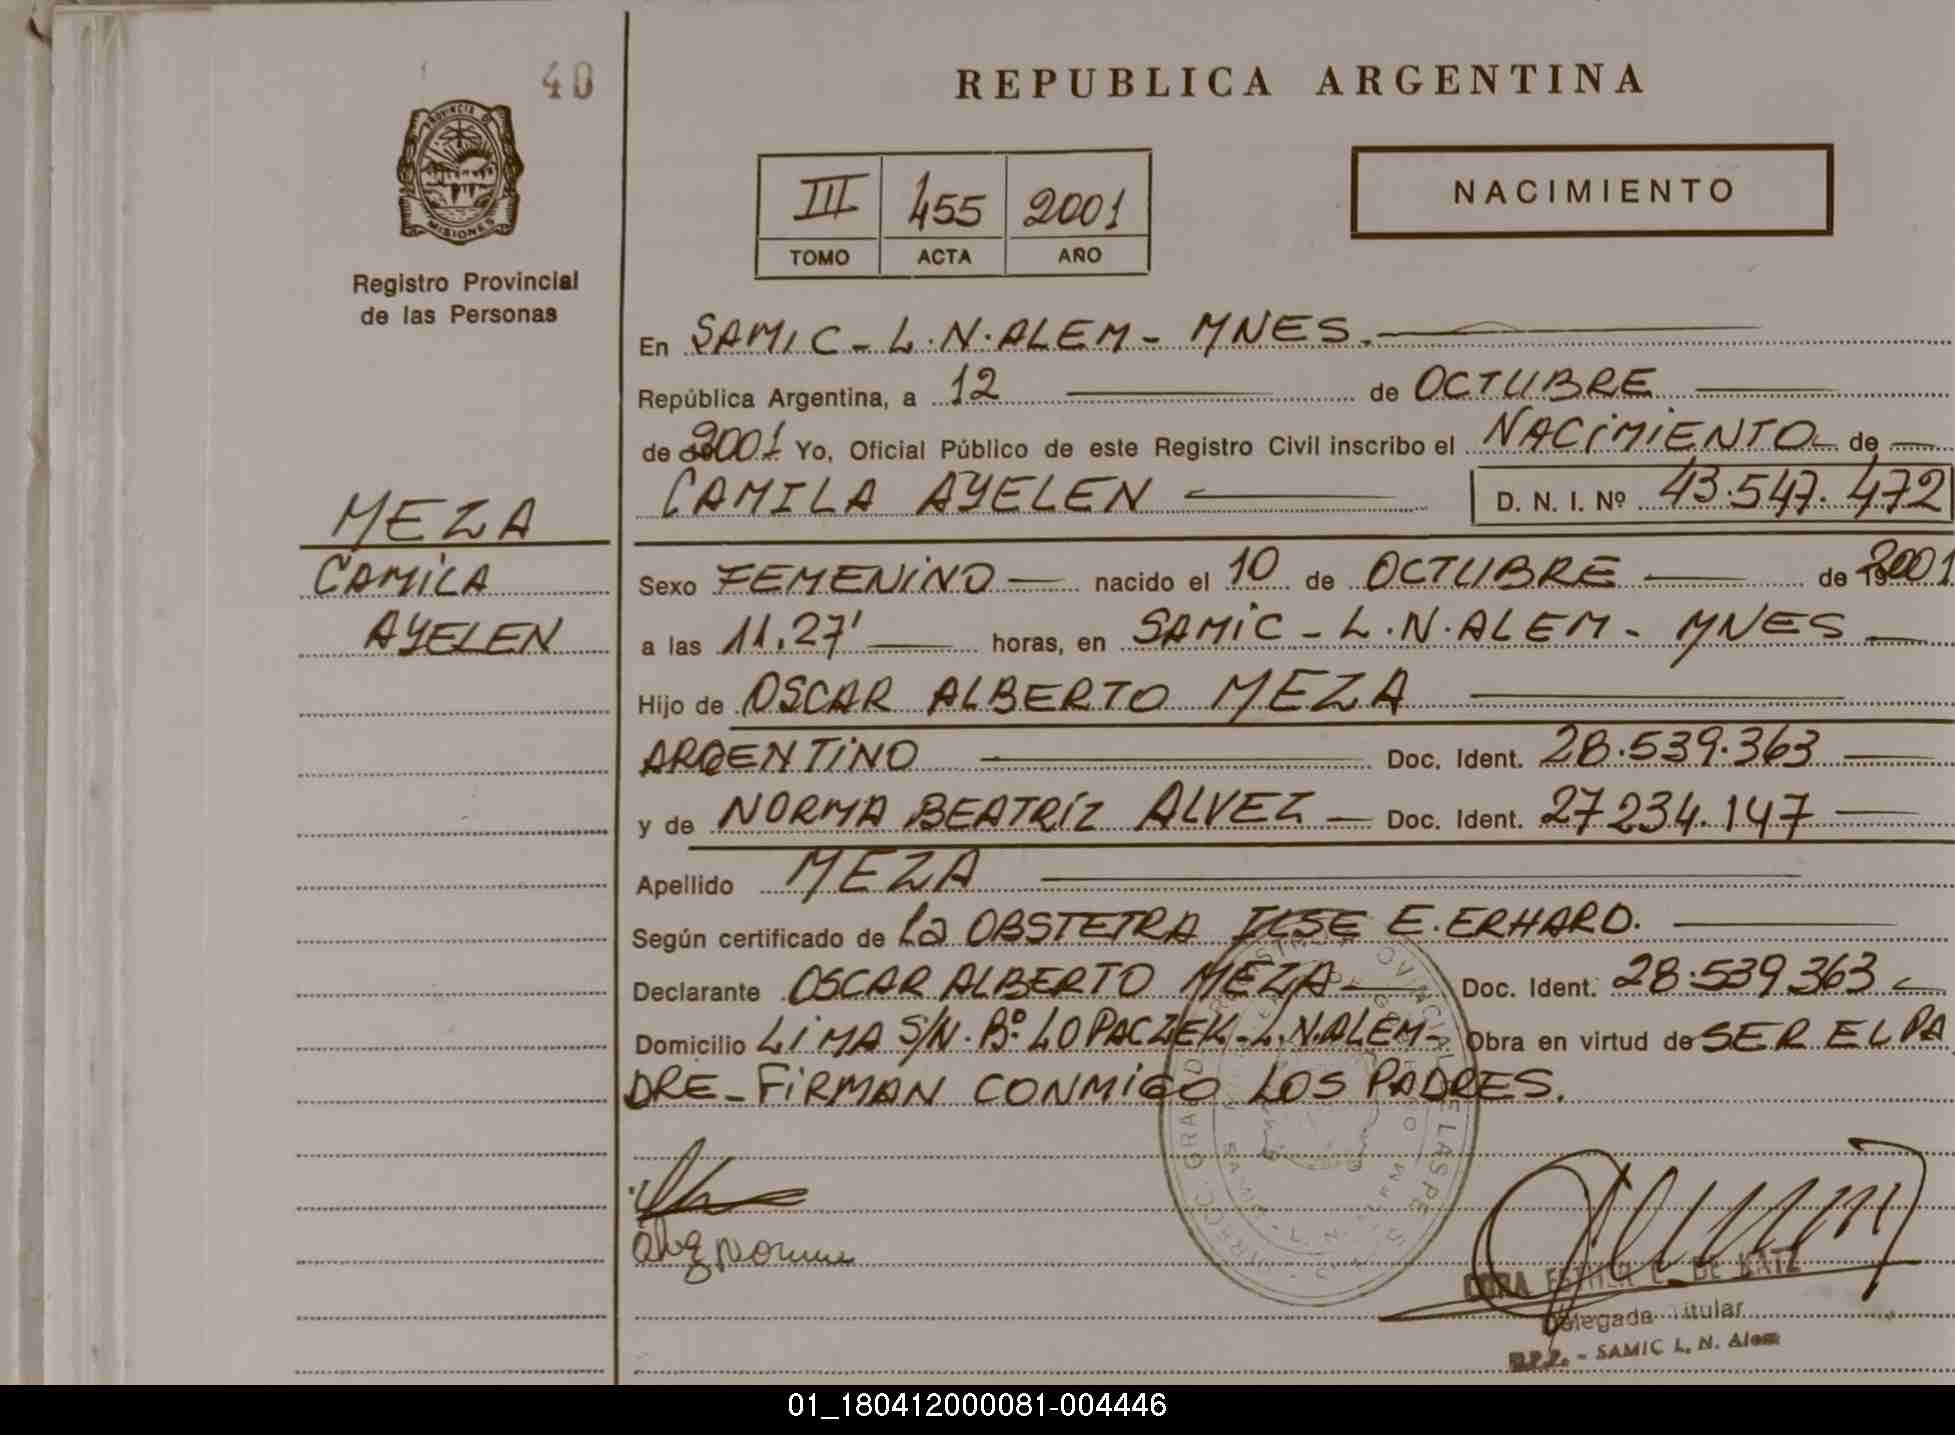 40
REPUBLICA ARGENTINA
PROVINCIA DE
MISIONES
Registro Provincial
de las Personas
III 455 2001
TOMO ACTA AÑO
NACIMIENTO
En SAMIC - L.N.ALEM - MNES.
República Argentina, a 12 de OCTUBRE
de 2001 Yo, Oficial Público de este Registro Civil inscribo el NACIMIENTO de
CAMILA AYELEN D. N. I. Nº 43.547.472
MEZA
CAMILA
AYELEN
Sexo FEMENINO nacido el 10 de OCTUBRE de 2001
a las 11.27' horas, en SAMIC - L.N.ALEM - MNES
Hijo de OSCAR ALBERTO MEZA
ARGENTINO Doc. Ident. 28.539.363
y de NORMA BEATRÍZ ALVEZ Doc. Ident. 27234.147
Apellido MEZA
Según certificado de la OBSTETRA ILSE E. ERHARD.
Declarante OSCAR ALBERTO MEZA Doc. Ident. 28.539363
Domicilio LIMA S/N. Bº. LOPACZEK - L.N.ALEM - Obra en virtud de SER EL PA
DRE - FIRMAN CONMIGO LOS PADRES.
Norma
DORA ESTHER L. DE KATZ
Delegada Titular
R.P.P. - SAMIC L. N. Alem
01_180412000081-004446